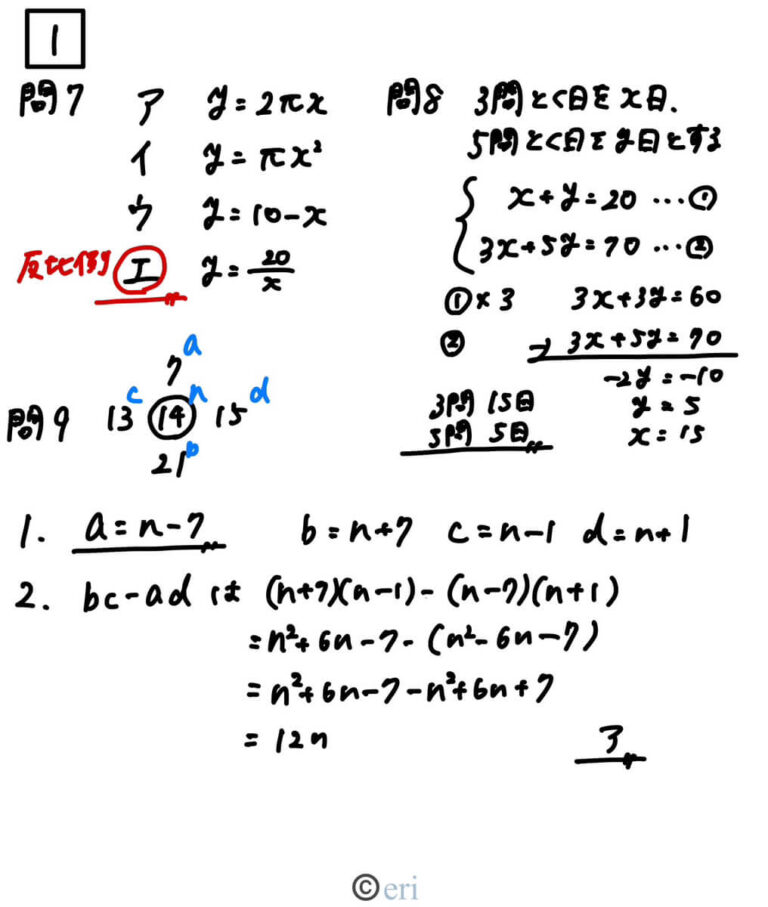 1
問7 ア y=2πx
イ y=πx²
ウ y=10-x
反比例 エ y=20/x
問8 3問とく日をx日、
5問とく日をy日とする
x+y=20 …①
3x+5y=70 …②
①×3 3x+3y=60
② -) 3x+5y=70
-2y=-10
y=5
x=15
3問 15日
5問 5日
問9
7 a
c 13 14 n 15 d
21 b
1. a=n-7 b=n+7 c=n-1 d=n+1
2. bc-ad は (n+7)(n-1)-(n-7)(n+1)
=n²+6n-7-(n²-6n-7)
=n²+6n-7-n²+6n+7
=12n
3
©eri